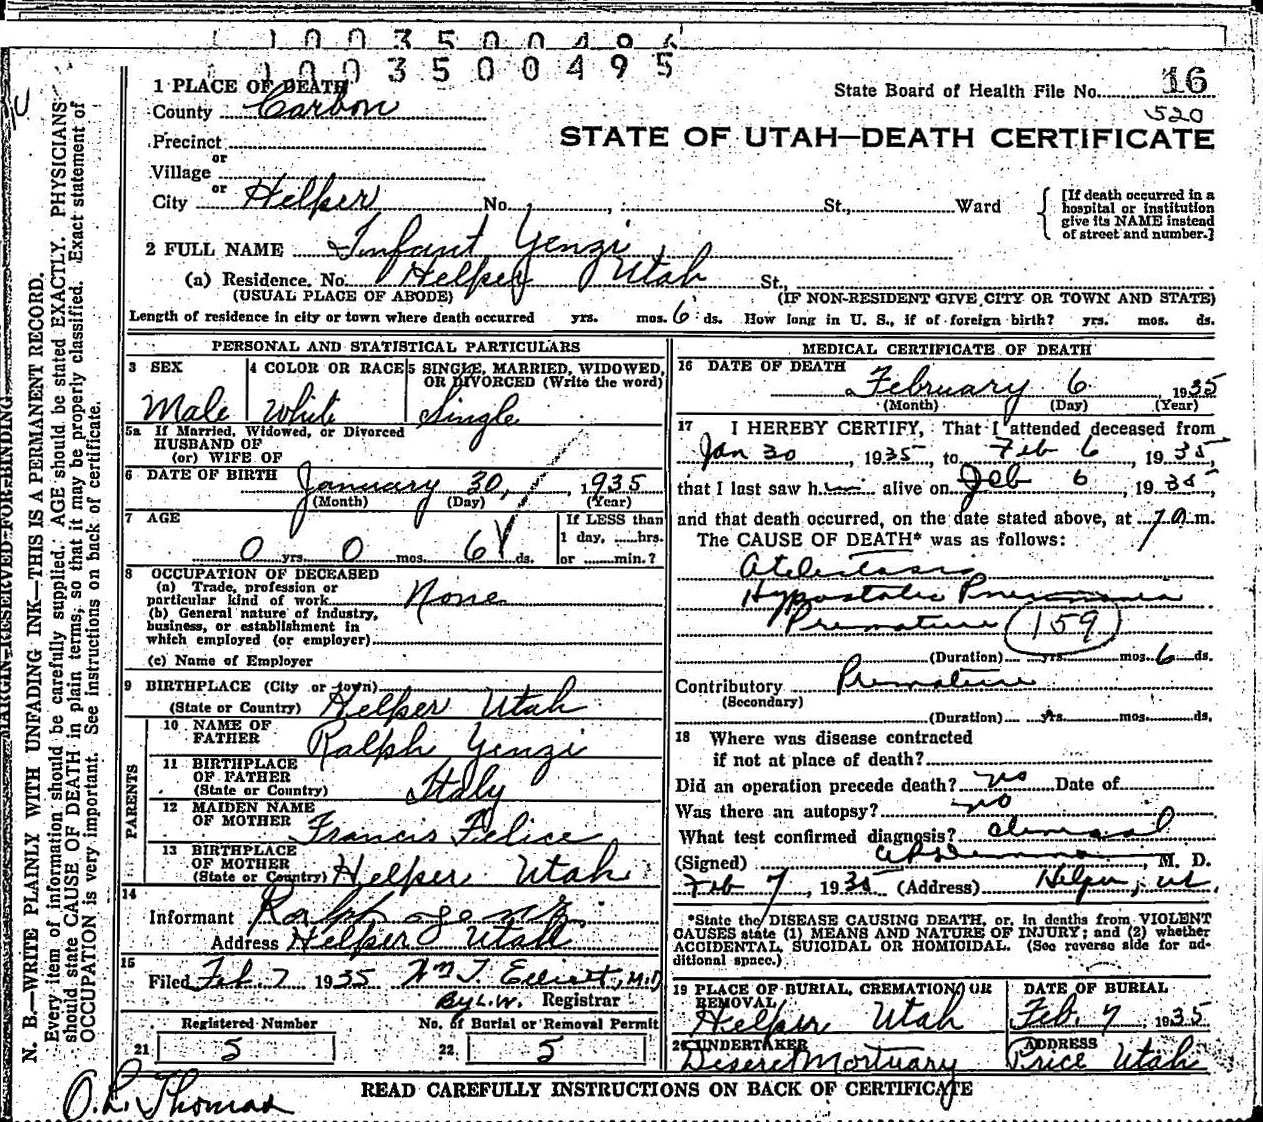 1003500496
1003500495
1 PLACE OF DEATH
County Carbon
State Board of Health File No. 16
520
STATE OF UTAH—DEATH CERTIFICATE
Precinct
or
Village
or
City Helper No. , St., Ward
[If death occurred in a
hospital or institution
give its NAME instead
of street and number.]
2 FULL NAME Infant Yenzi
(a) Residence. No. Helper Utah St.,
(USUAL PLACE OF ABODE) (IF NON-RESIDENT GIVE CITY OR TOWN AND STATE)
Length of residence in city or town where death occurred yrs. mos. 6 ds. How long in U. S., if of foreign birth? yrs. mos. ds.
PERSONAL AND STATISTICAL PARTICULARS
3 SEX
Male
4 COLOR OR RACE
White
5 SINGLE, MARRIED, WIDOWED,
OR DIVORCED (Write the word)
Single
5a If Married, Widowed, or Divorced
HUSBAND OF
(or) WIFE OF
6 DATE OF BIRTH January 30, 1935
(Month) (Day) (Year)
7 AGE
0 yrs. 0 mos. 6 ds.
If LESS than
1 day, hrs.
or min.?
8 OCCUPATION OF DECEASED
(a) Trade, profession or
particular kind of work None
(b) General nature of industry,
business, or establishment in
which employed (or employer)
(c) Name of Employer
9 BIRTHPLACE (City or town)
(State or Country) Helper Utah
PARENTS
10 NAME OF
FATHER Ralph Yenzi
11 BIRTHPLACE
OF FATHER
(State or Country) Italy
12 MAIDEN NAME
OF MOTHER Francis Felice
13 BIRTHPLACE
OF MOTHER
(State or Country) Helper Utah
14
Informant Ralph
Address Helper Utah
15
Filed Feb. 7 1935 Wm T. Elliott, M.D
By L.W. Registrar
Registered Number
21 5
No. of Burial or Removal Permit
22 5
MEDICAL CERTIFICATE OF DEATH
16 DATE OF DEATH
February 6 1935
(Month) (Day) (Year)
17 I HEREBY CERTIFY, That I attended deceased from
Jan 30, 1935, to Feb 6, 1935,
that I last saw him alive on Feb 6, 1935,
and that death occurred, on the date stated above, at 7 a m.
The CAUSE OF DEATH* was as follows:
Atelectasis
Hypostatic Pneumonia
Premature 159
(Duration) yrs. mos. 6 ds.
Contributory Premature
(Secondary)
(Duration) yrs. mos. ds.
18 Where was disease contracted
if not at place of death?
Did an operation precede death? no Date of
Was there an autopsy? no
What test confirmed diagnosis? clinical
(Signed) , M. D.
Feb 7, 1935 (Address) Helper, Ut.
*State the DISEASE CAUSING DEATH, or, in deaths from VIOLENT
CAUSES state (1) MEANS AND NATURE OF INJURY; and (2) whether
ACCIDENTAL, SUICIDAL OR HOMICIDAL. (See reverse side for ad-
ditional space.)
19 PLACE OF BURIAL, CREMATION OR
REMOVAL
Helper Utah
DATE OF BURIAL
Feb. 7, 1935
20 UNDERTAKER
Deseret Mortuary
ADDRESS
Price Utah
READ CAREFULLY INSTRUCTIONS ON BACK OF CERTIFICATE
O. L. Thomas
MARGIN RESERVED FOR BINDING
N. B.—WRITE PLAINLY WITH UNFADING INK—THIS IS A PERMANENT RECORD.
Every item of information should be carefully supplied. AGE should be stated EXACTLY. PHYSICIANS
should state CAUSE OF DEATH in plain terms, so that it may be properly classified. Exact statement of
OCCUPATION is very important. See instructions on back of certificate.